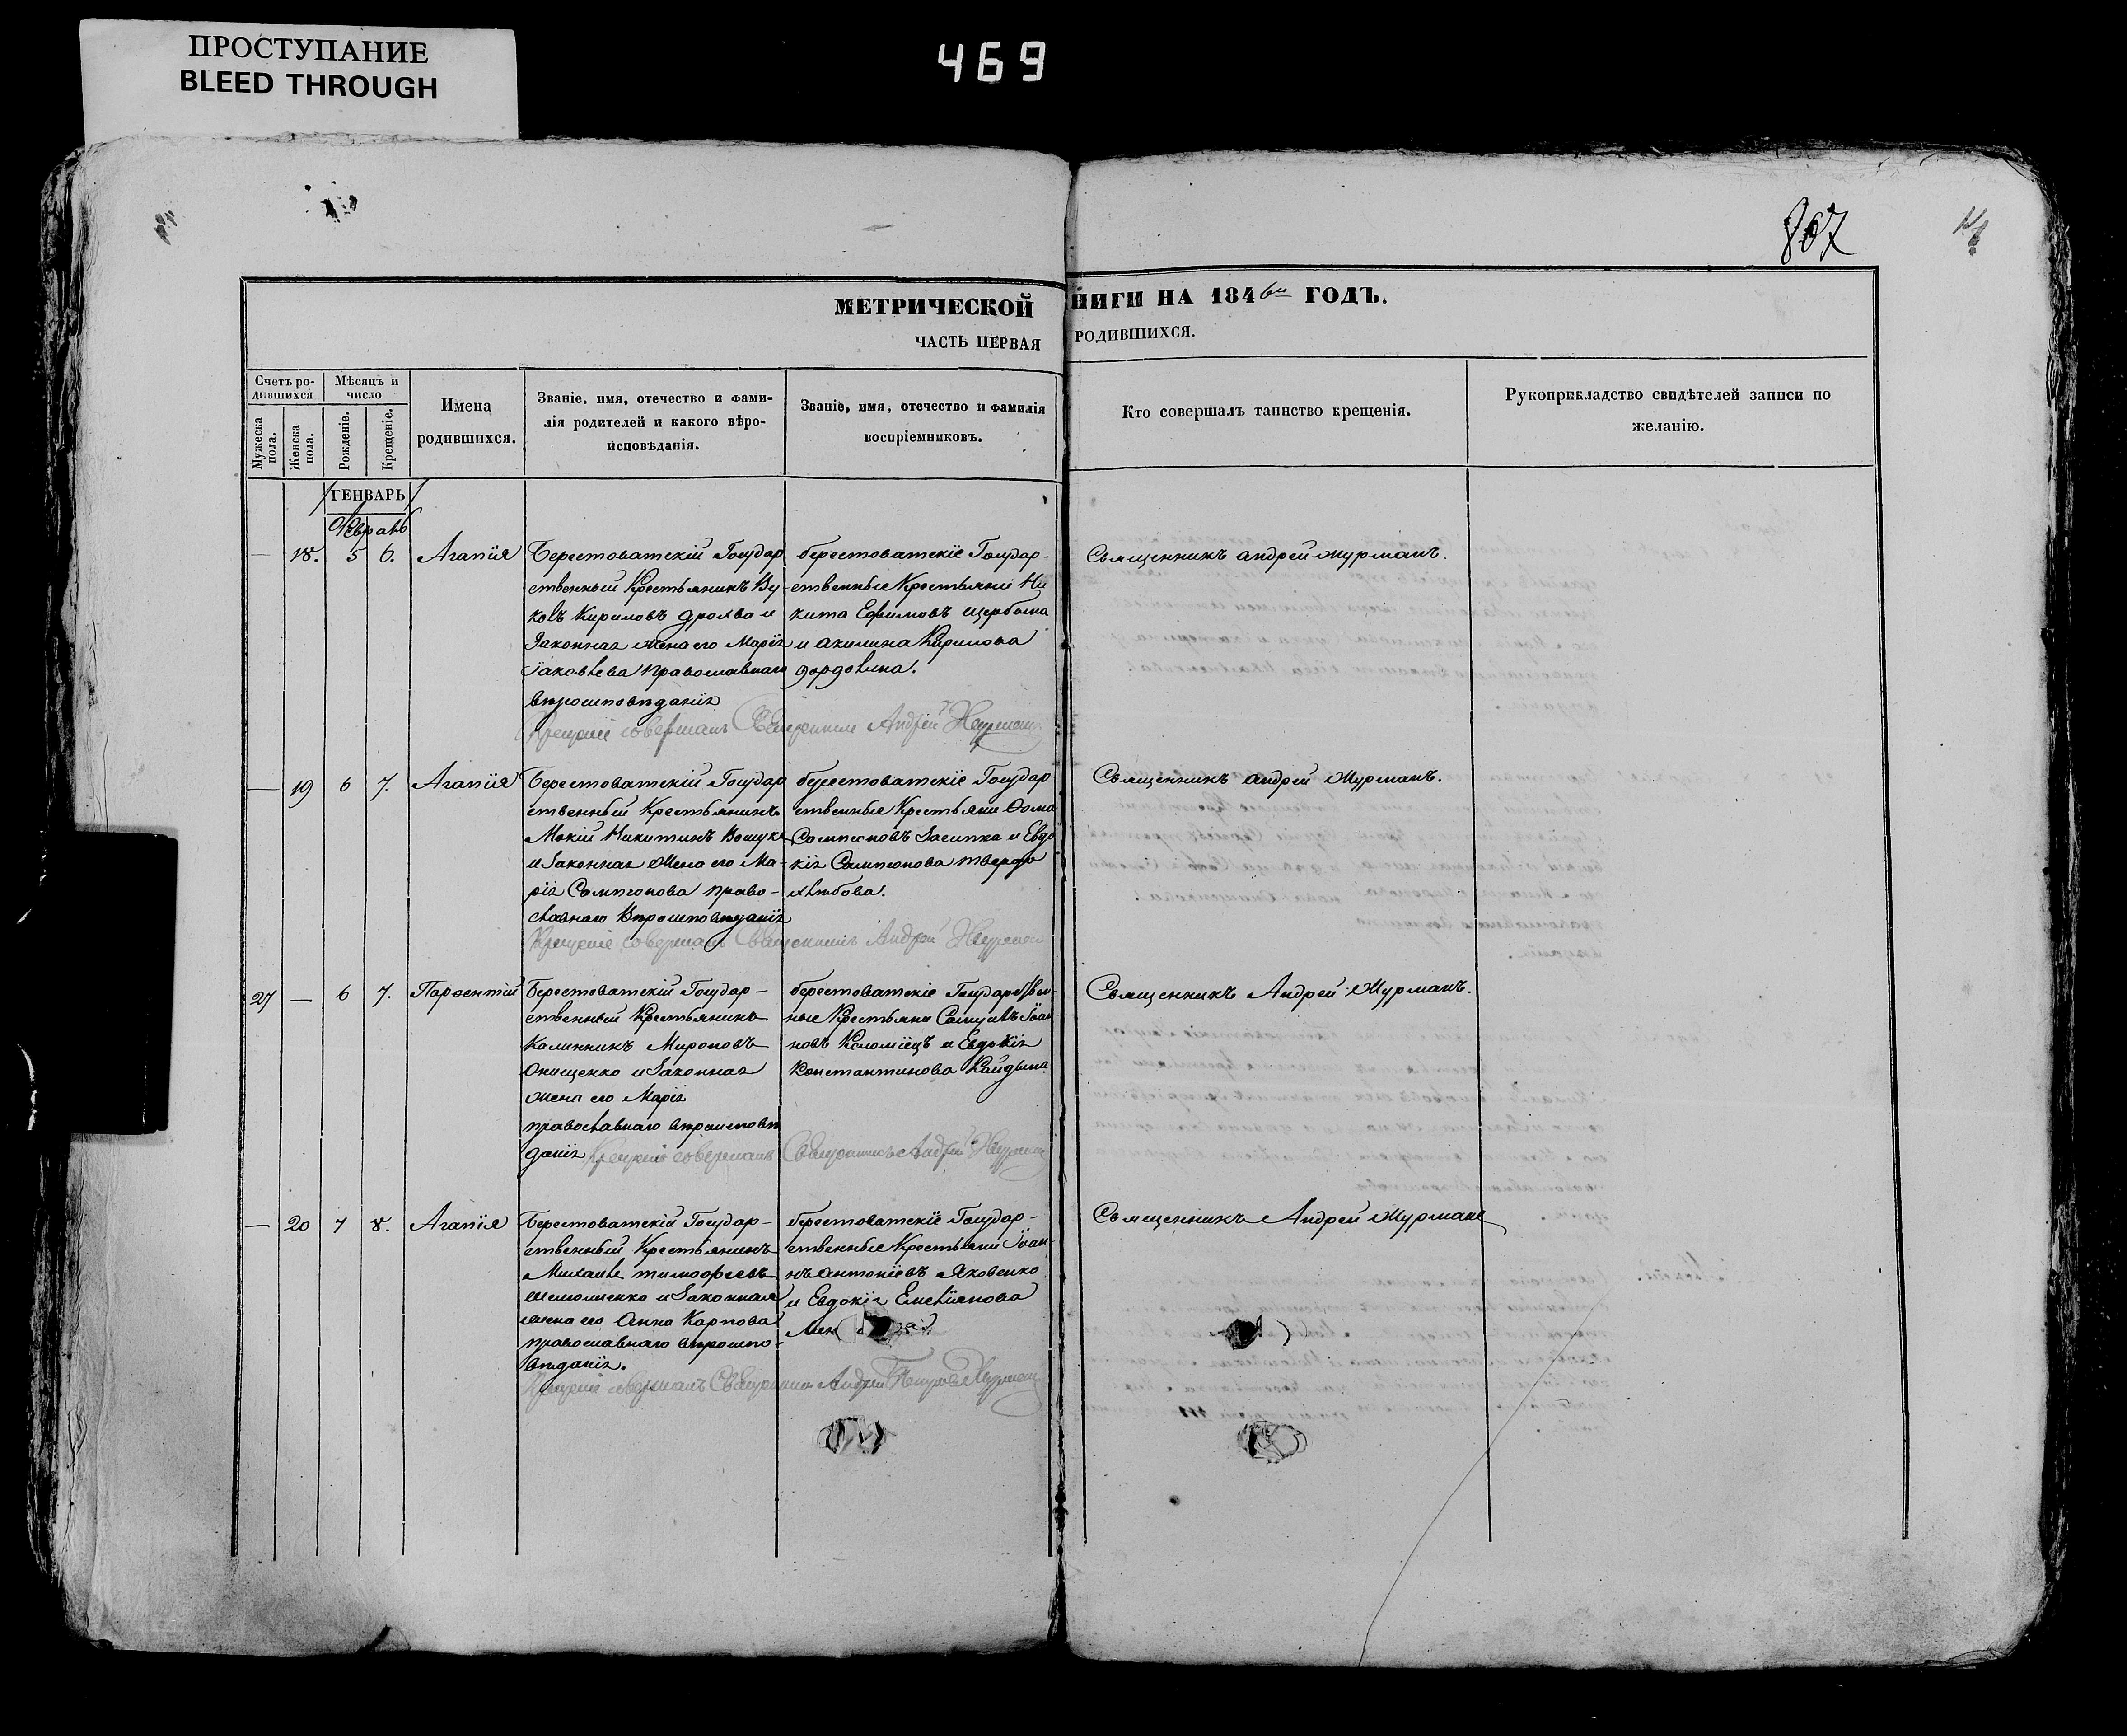 ПРОСТУПАНИЕ
BLEED THROUGH
469
807
МЕТРИЧЕСКОЙ
НИГИ НА 1846й ГОДЪ.
ЧАСТЬ ПЕРВАЯ
РОДИВШИХСЯ.
Счетъ ро-
дившихся
Мужеска
пола.
Женска
пола.
Мѣсяцъ и
число
Рожденіе.
Крещеніе.
Имена
родившихся.
Званіе, имя, отечество и фами-
лія родителей и какого вѣро-
исповѣданія.
Званіе, имя, отечество и фамилія
воспріемниковъ.
Кто совершалъ таинство крещенія.
Рукоприкладство свидѣтелей записи по
желанію.
ГЕНВАРЬ
Февраль
— 18. 5 6. Агапія
Берестоватскій Государ
ственный Крестьянинъ
Кириловъ и
Законная жена его Марія
Іаковлева православнаго
вѣроисповѣданія
Крещеніе совершалъ Священникъ Андрей
берестоватскіе Государ-
ственные Крестьяне Ни
кита Ефимовъ Щербина
и Акилина Кирилова
Священникъ Андрей Журманъ.
— 19 6 7. Агапія
Берестоватскій Государ
ственный Крестьянинъ
Мокій Никитинъ
и Законная Жена его Ма-
рія Самсонова право-
славнаго Вѣроисповѣданія
Крещеніе совершалъ Священникъ Андрей
берестоватскіе Государ
ственные Крестьяне Фома
и Евдо
кія
Священникъ Андрей Журманъ.
27 — 6 7. Парѳентій
Берестоватскій Государ-
ственный Крестьянинъ
Калинникъ Мироновъ
Онищенко и Законная
жена его Марія
православнаго вѣроисповѣ
данія Крещеніе совершалъ Священникъ Андрей
берестоватскіе Государствен-
ные Крестьяне Самуилъ Іоан
новъ Коломіецъ и Евдокія
Константинова
Священникъ Андрей Журманъ.
— 20 7 8. Агапія
Берестоватскій Государ-
ственный Крестьянинъ
Михаилъ Тимофеевъ
и Законная
жена его Анна Карпова
православнаго вѣроиспо-
вѣданія.
Крещеніе совершалъ Священникъ Андрей Петровъ
берестоватскіе Государ-
ственные Крестьяне Іоан-
нъ Антоніевъ Яковенко
и Евдокія Емеліянова
Священникъ Андрей Журманъ